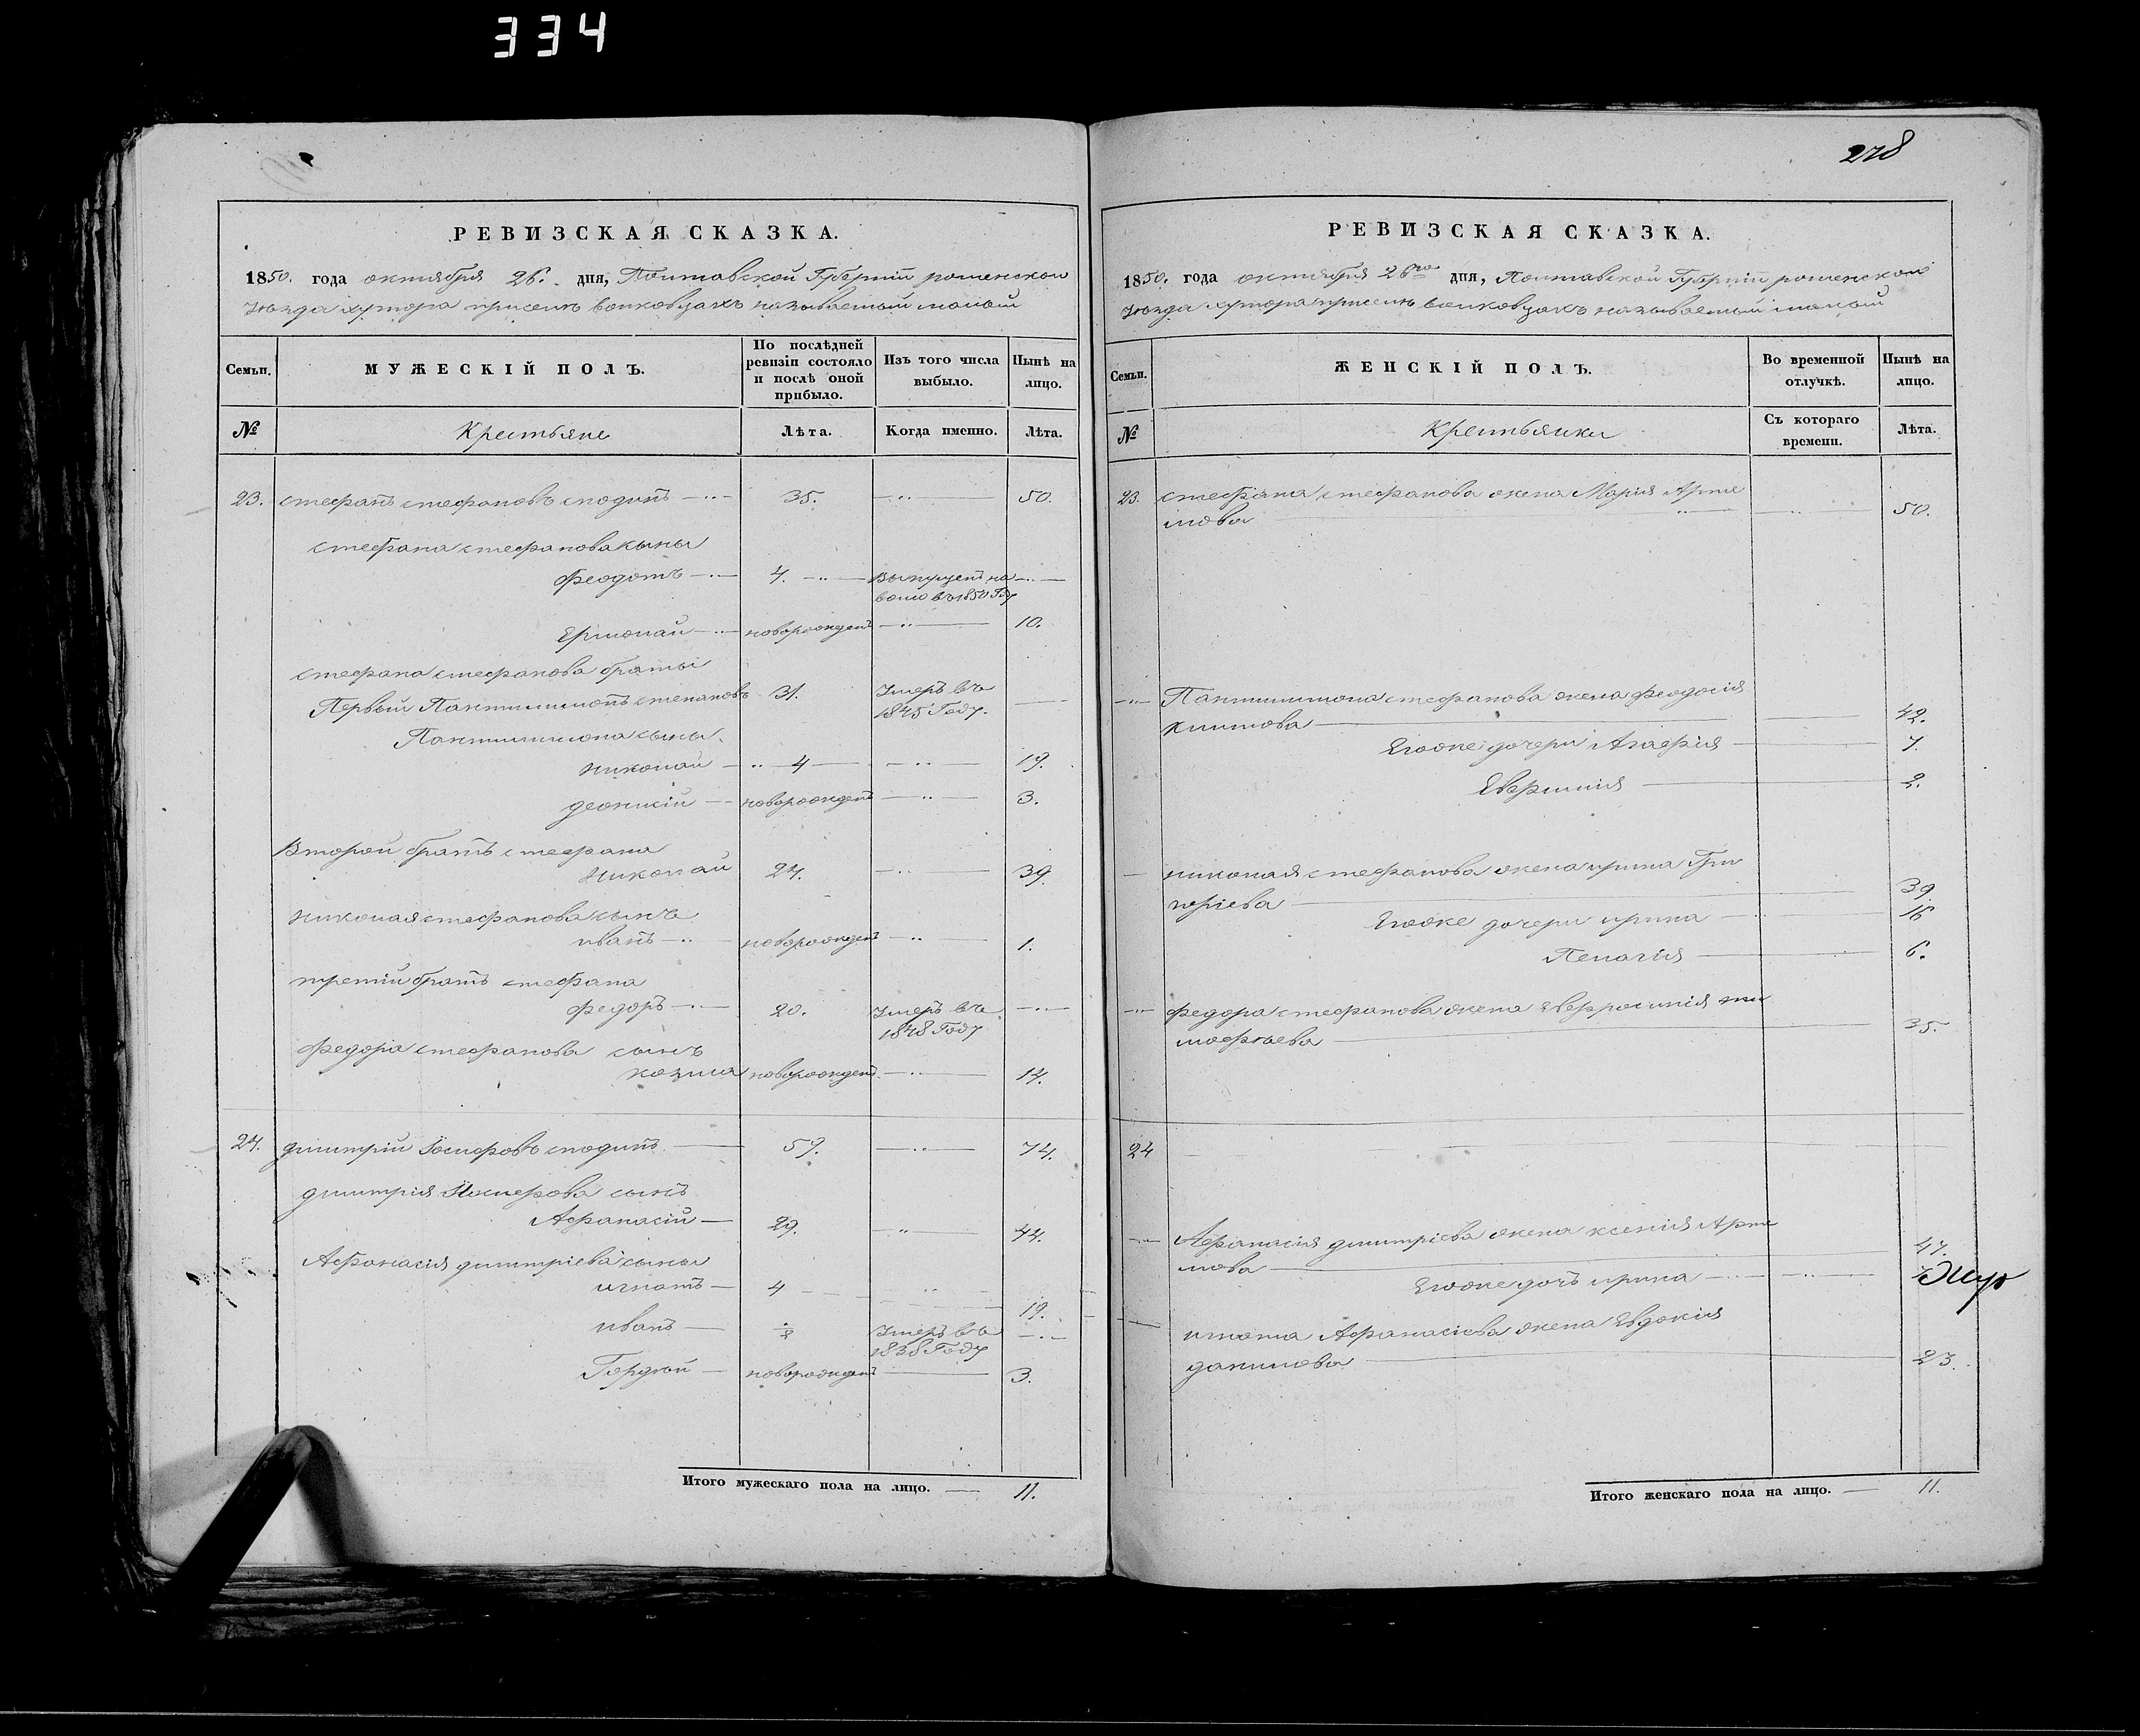 334
РЕВИЗСКАЯ СКАЗКА.
1850. года октября 26. дня, Полтавской Губерніи роменскои
уезда хутора присели волковцахъ называемый малый
Семьи.
МУЖЕСКІЙ ПОЛЪ.
По послѣдней ревизіи состояло и послѣ оной прибыло.
Изъ того числа выбыло.
Нынѣ на лицо.
№
Крестьяне
Лѣта.
Когда именно.
Лѣта.
23. стефанъ стефановъ 35. 50.
стефана стефанова сыны
Феодотъ 4. въ 1850 Году
Ермолай новорожденъ 10.
стефана стефанова браты
Первый Пантилимонъ степановъ 31. Умеръ въ 1845 Году.
Пантилимона сыны.
николай 4 19.
новорожденъ 3.
Второй братъ стефана
николай 24. 39.
николая стефанова сынъ
иванъ новорожденъ 1.
третій братъ стефана
федоръ 20. Умеръ въ 1848 Году
федора стефанова сынъ
козма новорожденъ 14.
24. димитрій Іосифовъ 59. 74.
димитрія Іосифова сынъ
Афанасій 29. 44.
Афанасія димитріева сыны
игнатъ 4 19.
иванъ Умеръ въ 1838 Году
Гордѣй новорожденъ 3.
Итого мужескаго пола на лицо. 11.
278
РЕВИЗСКАЯ СКАЗКА.
1850. года октября 26го дня, Полтавской Губерніи роменскои
уезда хутора присели волковцахъ называемый малый
Семьи.
ЖЕНСКІЙ ПОЛЪ.
Во временной отлучкѣ.
Нынѣ на лицо.
№
Крестьянки
Съ котораго времени.
Лѣта.
23. стефана стефанова жена Марія Арте
мова 50.
Пантилимона стефанова жена феодосія
климова 42.
Егоже дочери Агафія 7.
Евфимія 2.
николая стефанова жена ирина Гри
горіева 39.
Егоже дочери ирина 16
Пелагія 6.
федора стефанова жена Евфросинія ти
мофѣева 35.
24
Афанасія димитріева жена ксенія Арте
мова 47.
Егоже дочь ирина
игната Афанасіева жена Евдокія
данилова 23.
Итого женскаго пола на лицо. 11.